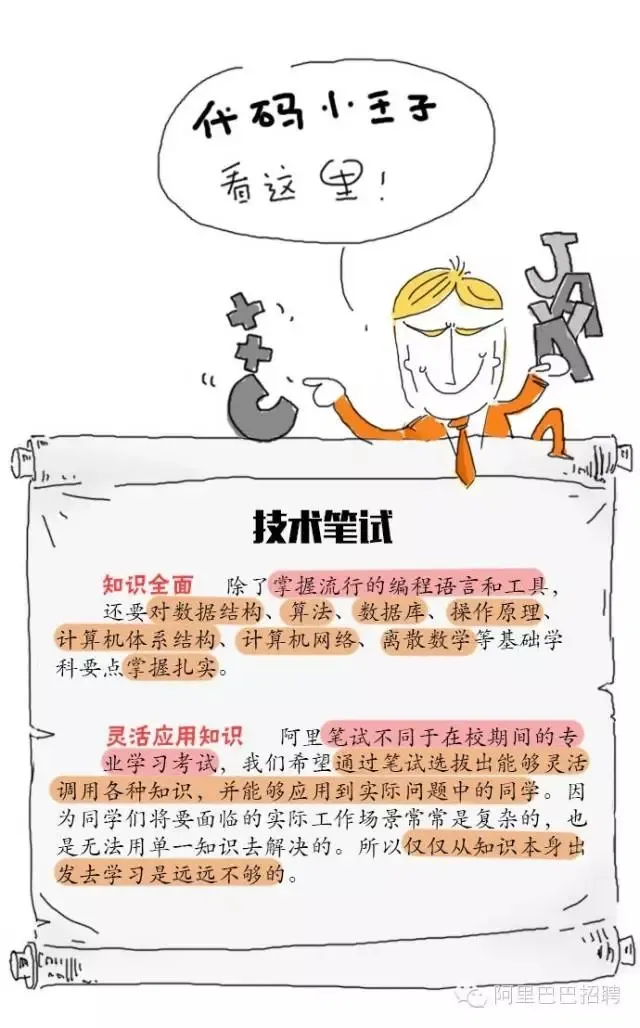 代码小王子
看这里!
C++
JAVA
技术笔试
知识全面 除了掌握流行的编程语言和工具,
还要对数据结构、算法、数据库、操作原理、
计算机体系结构、计算机网络、离散数学等基础学
科要点掌握扎实。
灵活应用知识 阿里笔试不同于在校期间的专
业学习考试,我们希望通过笔试选拔出能够灵活
调用各种知识,并能够应用到实际问题中的同学。因
为同学们将要面临的实际工作场景常常是复杂的,也
是无法用单一知识去解决的。所以仅仅从知识本身出
发去学习是远远不够的。
阿里巴巴招聘